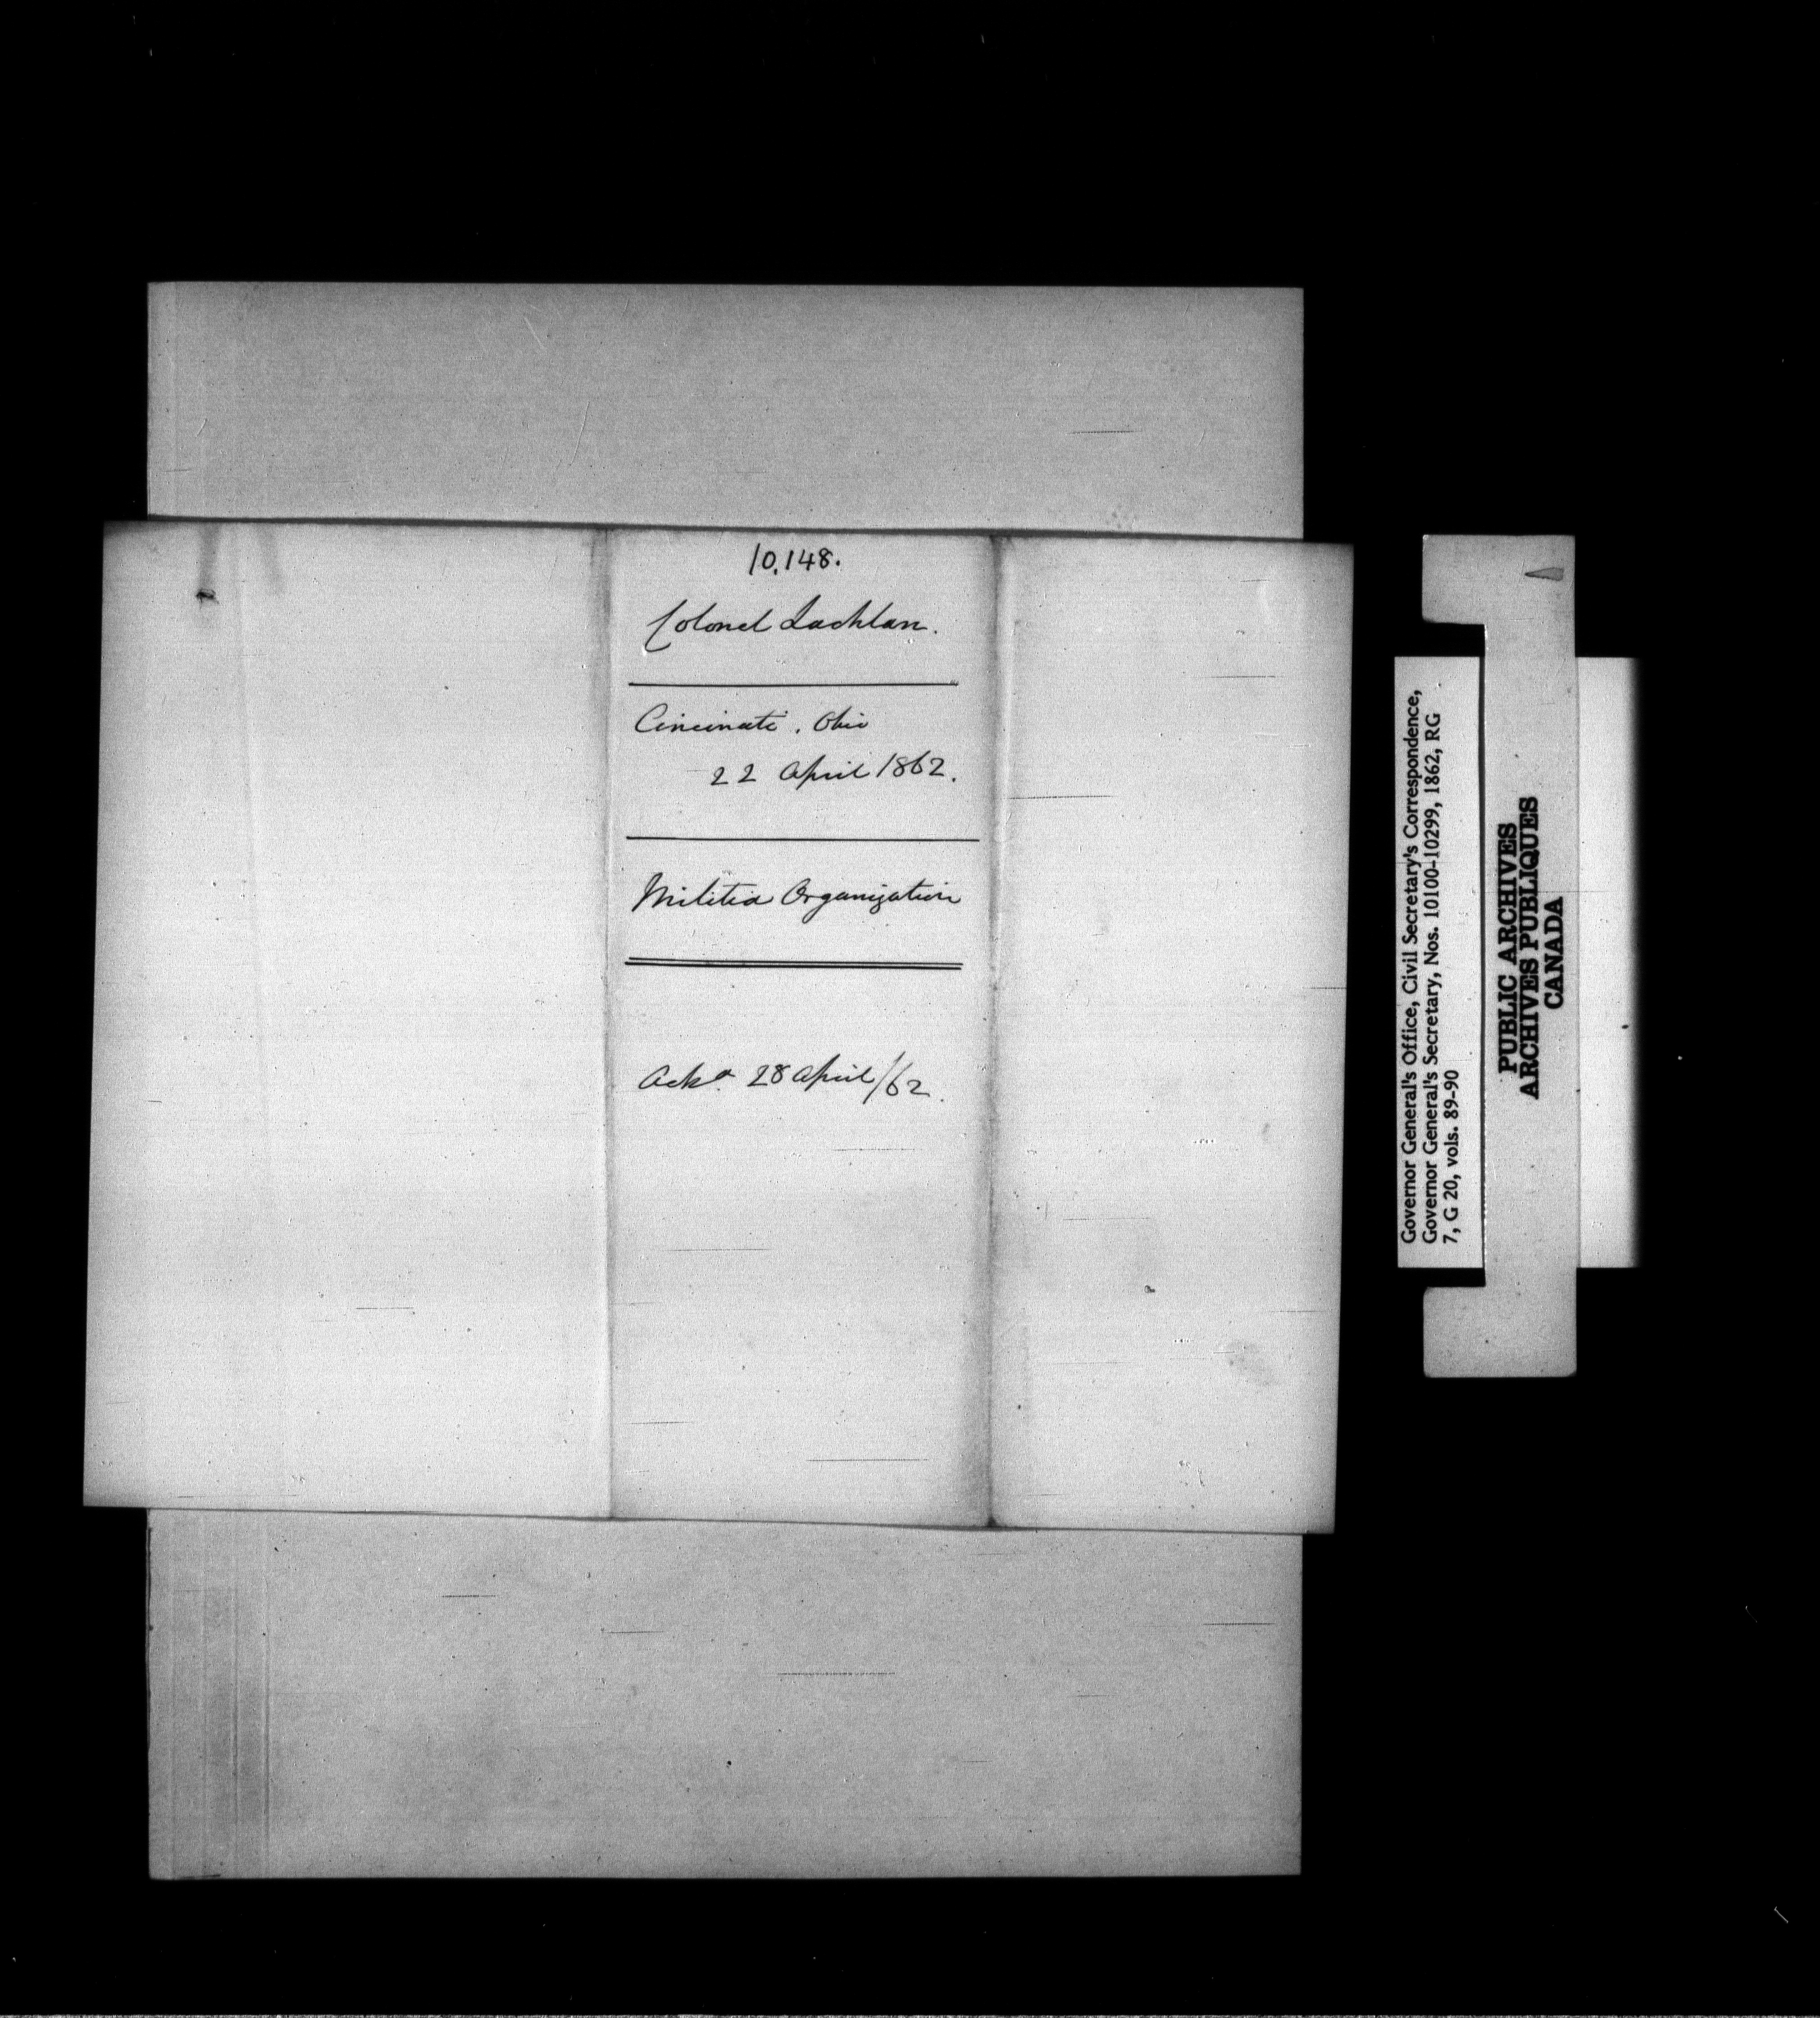 10,148.
Colonel Lachlan.
Cincinati, Ohio
22 April 1862.
Militia Organization
Ackd 28 April/62.
Governor General's Office, Civil Secretary's Correspondence,
Governor General's Secretary, Nos. 10100-10299, 1862, RG
7, G 20, vols. 89-90
PUBLIC ARCHIVES
ARCHIVES PUBLIQUES
CANADA